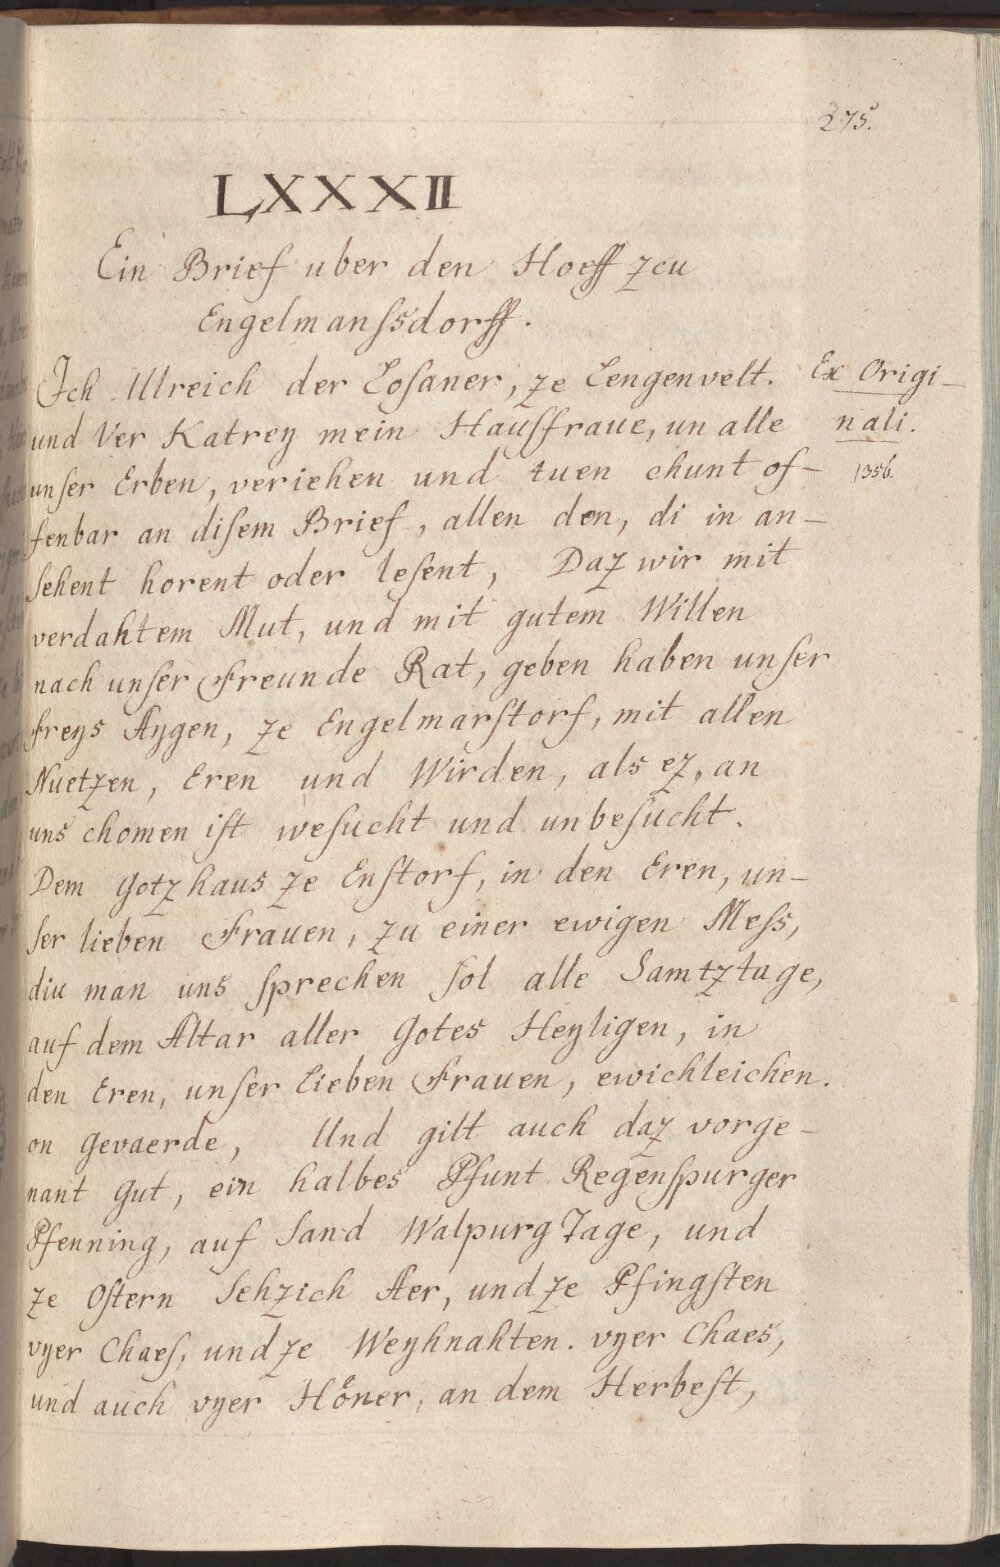 275.
LXXXII
Ein Brief uber den Hoeff zcu
Engelmanſsdorff.
Ich Ulreich der Loſaner, ze Lengenvelt.
und Ver Katrey mein Hauſfraue, un alle
unſer Erben, veriehen und tuen chunt of-
fenbar an diſem Brief, allen den, di in an-
ſehent horent oder leſent, Daz wir mit
verdahtem Mut, und mit gutem Willen
nach unſer Freunde Rat, geben haben unſer
freys Aygen, ze Engelmarſtorf, mit allen
Nuetzen, Eren und Wirden, als ez, an
uns chomen iſt weſucht und unbeſucht.
Dem Gotzhaus ze Enſtorf, in den Eren, un-
ſer lieben Frauen, zu einer ewigen Meſs,
diu man uns ſprechen ſol alle Samtztage,
auf dem Altar aller Gotes Heyligen, in
den Eren, unſer lieben Frauen, ewichleichen.
on Gevaerde, Und gilt auch daz vorge-
nant Gut, ein halbes Pfunt Regenſpurger
Pfenning, auf Sand Walpurg Tage, und
ze Oſtern Sehzich Aer, und ze Pfingſten
vyer Chaeſ, und ze Weyhnahten. vyer Chaes,
und auch vyer Höner, an dem Herbeſt,
Ex Origi-
nali.
1356.